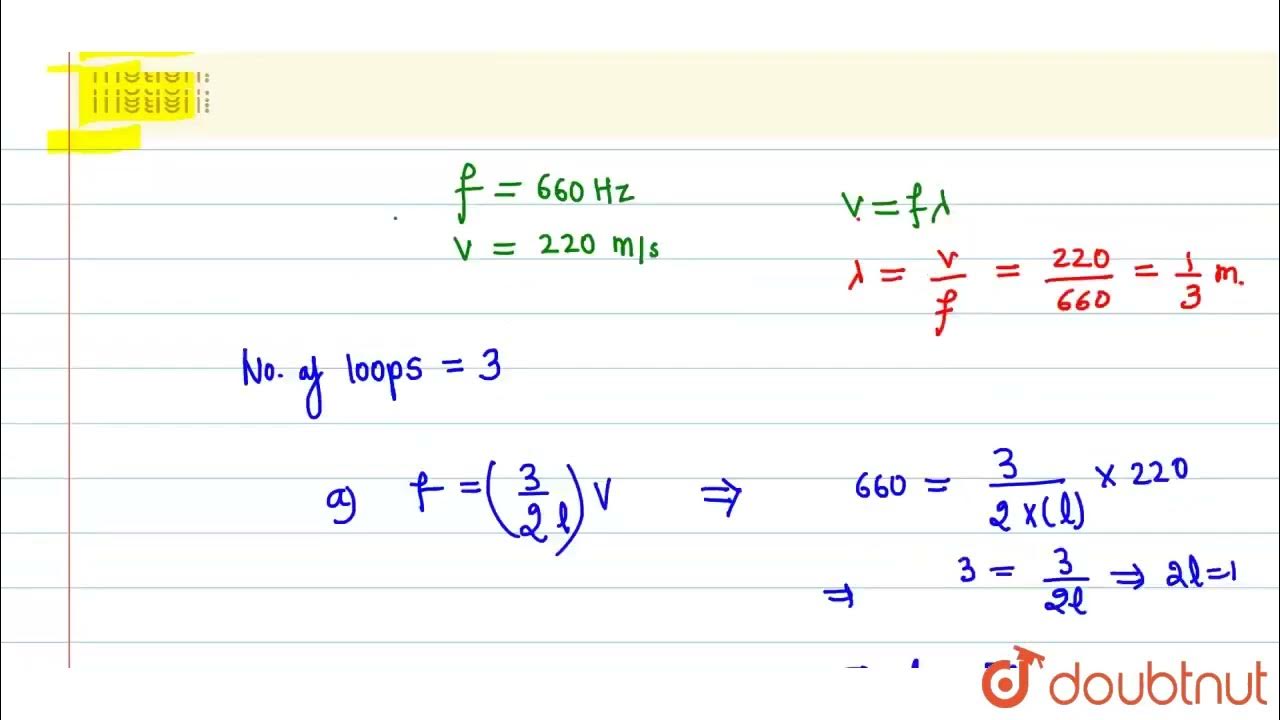 f = 660 Hz
v = 220 m/s
v = fλ
λ = v/f = 220/660 = 1/3 m.
No. of loops = 3
a) f = (3/2l) v ⇒ 660 = 3/(2×(l)) × 220
⇒ 3 = 3/2l ⇒ 2l=1
doubtnut